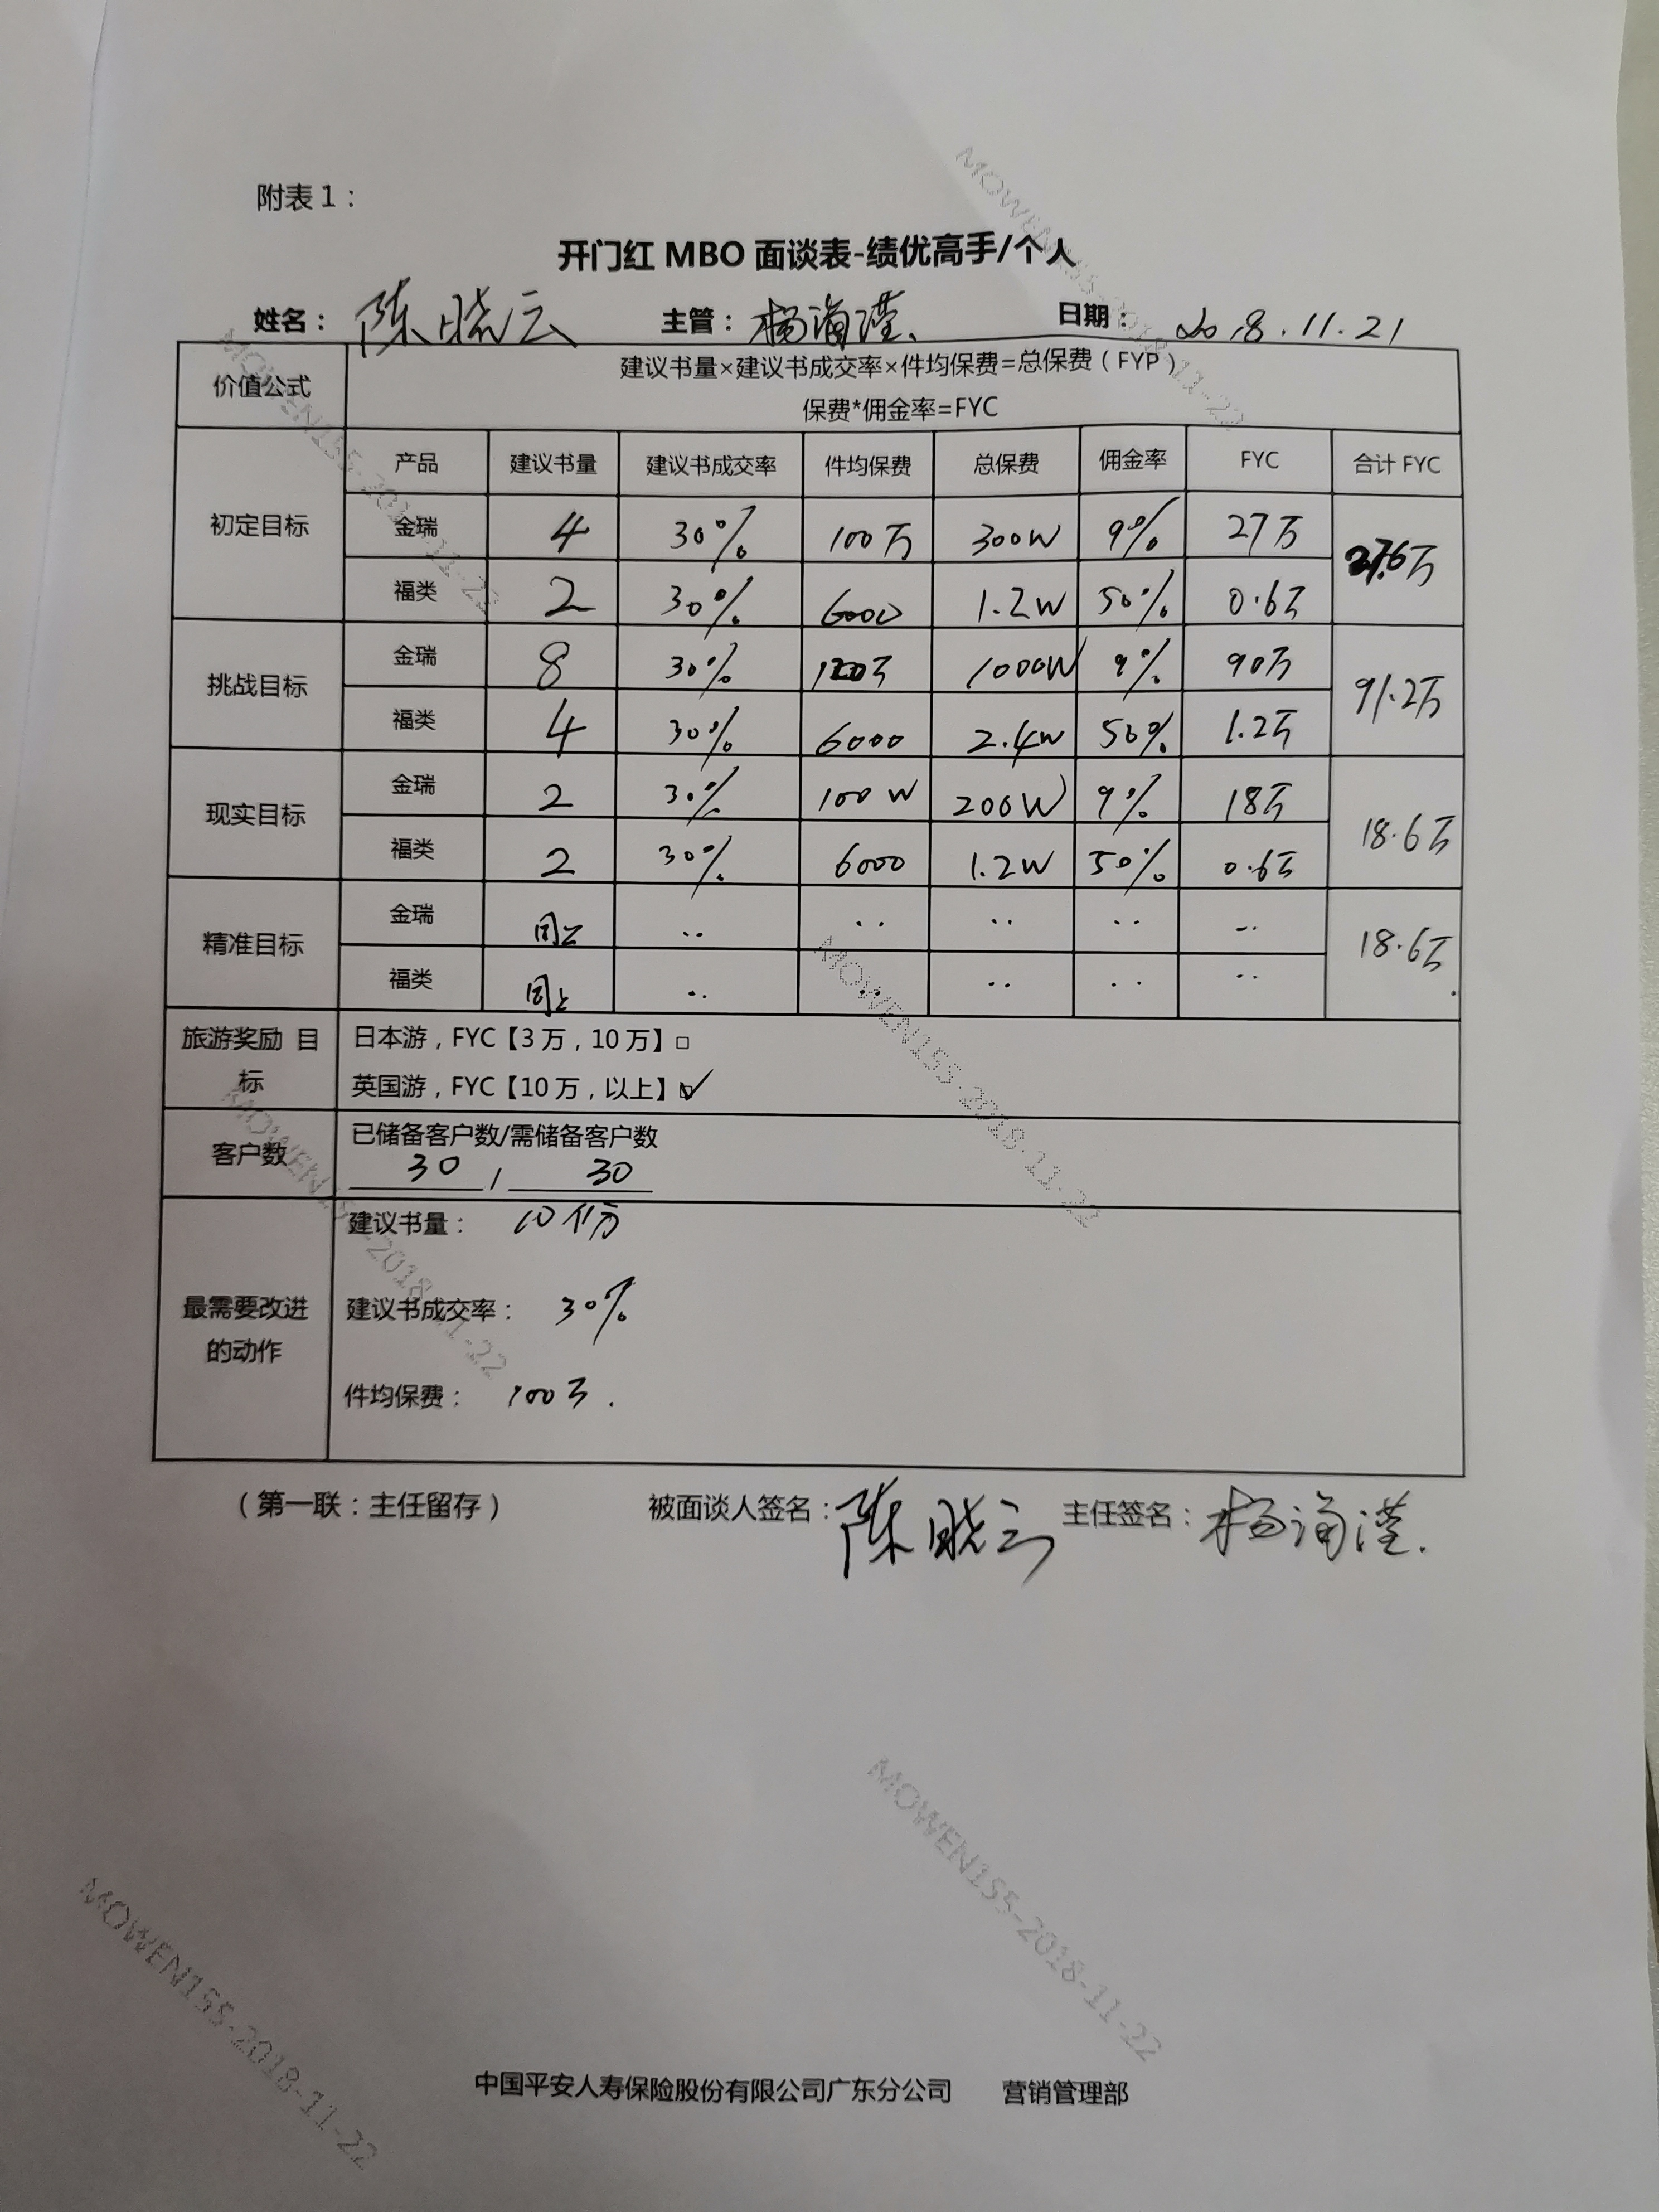 附表1：
开门红 MBO 面谈表-绩优高手/个人
姓名： 陈晓云 主管： 杨海滢. 日期： 2018.11.21
价值公式 建议书量×建议书成交率×件均保费=总保费（FYP）
保费*佣金率=FYC
产品 建议书量 建议书成交率 件均保费 总保费 佣金率 FYC 合计 FYC
初定目标 金瑞 4 30% 100万 300W 9% 27万 27.6万
福类 2 30% 6000 1.2W 50% 0.6万
挑战目标 金瑞 8 30% 万 1000W 9% 90万 91.2万
福类 4 30% 6000 2.4W 50% 1.2万
现实目标 金瑞 2 30% 100W 200W 9% 18万 18.6万
福类 2 30% 6000 1.2W 50% 0.6万
精准目标 金瑞 同上 .. .. .. .. .. 18.6万
福类 同上 .. .. .. .. ..
旅游奖励 目标 日本游，FYC【3万，10万】□
英国游，FYC【10万，以上】☑
客户数 已储备客户数/需储备客户数
30 / 30
最需要改进的动作 建议书量： 10份
建议书成交率： 30%
件均保费： 100万.
（第一联：主任留存） 被面谈人签名：陈晓云 主任签名：杨海滢.
中国平安人寿保险股份有限公司广东分公司 营销管理部
MOWEN155-2018-11-22
MOWEN155-2018-11-22
MOWEN155-2018-11-22
MOWEN155-2018-11-22
MOWEN155-2018-11-22
MOWEN155-2018-11-22